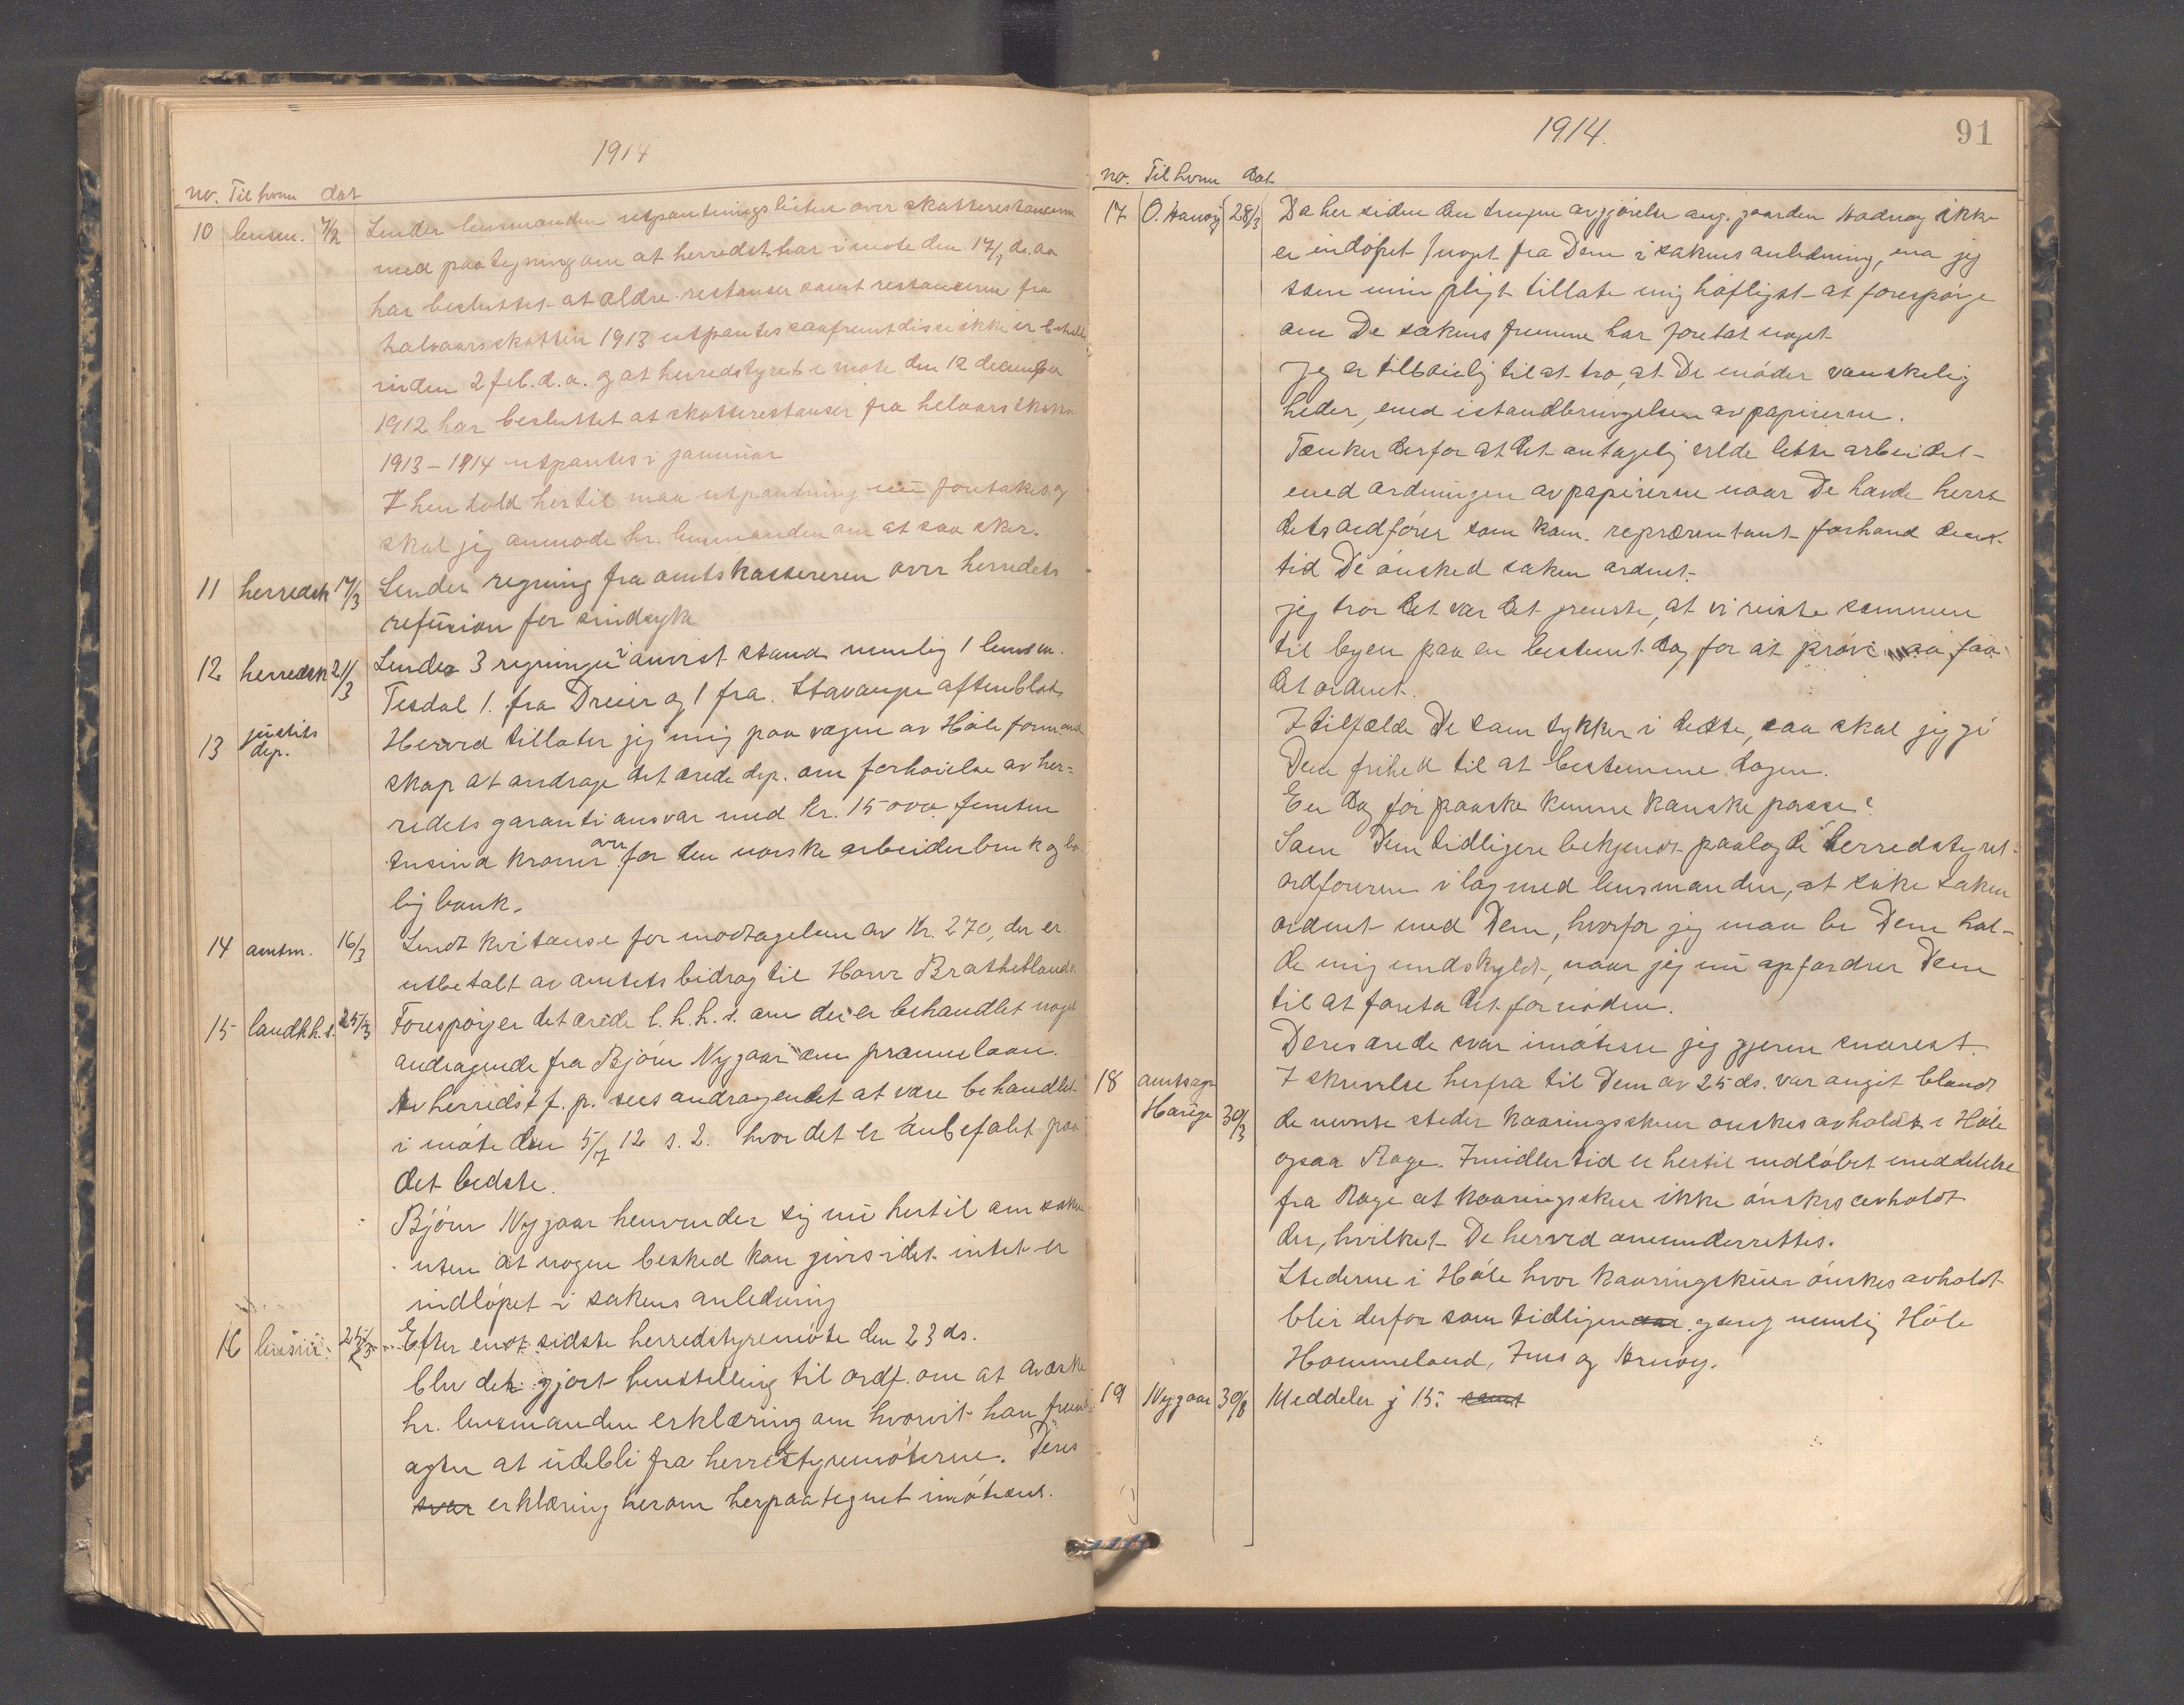 1914
no. Til hvem dat
10 lensm. 7/2 Sender lensmanden utpantningslisten over skatterestancerne
med paategning om at herredst. har i møte den 17/1 d.a.
har besluttet at ældre restanser samt restanserne fra
halvaarsskatten 1913 utpantes saafremt disse ikke er betalt
inden 2 feb. d.a. og at herredstyret i møte den 12 december
1912 har besluttet at skatterestanser fra helaarsskatten
1913 – 1914 utpantes i januar
I henhold hertil maa utpantning nu foretakes og
skal jeg anmode hr. lensmanden om at saa sker.
11 herredsk 17/3 Sender regning fra amtskassereren over herredets
refusion for sindsyke
12 herredsk 21/3 Sender 3 regninger i anvist stand nemlig 1 lensm.
Tesdal 1. fra Dreier og 1 fra Stavanger aftenblad
13 justits dep. Herved tillater jeg mig paa vegne av Høle formand
skap at andrage det ærede dep. om forhøielse av her=
redets garantiansvar med kr. 15 000 femten
tusind kroner for den norske arbeiderbruk og bo
lig bank.
14 amtm. 16/3 Sendt kvitanse for modtagelsen av Kr. 270, der er
utbetalt av amtets bidrag til Hover Brathetlands.
15 landh.h.s. 25/3 Forespørger det ærede l.h.h.s. om der er behandlet noget
andragende fra Bjørn Nygaar om præmielaan.
Av herredst f. p. sees andragendet at være behandlet
i møte den 5/7 12 s. 2. hvor det er anbefalt paa
det bedste.
Bjørn Nygaar henvender sig nu hertil om saken
uten at nogen besked kan gives idet intet er
indløpet i sakens anledning
16 lensm. 25/3 Efter endt sidste herredstyremøte den 23 ds.
blev det gjort henstilling til ordf. om at avæske
hr. lensmanden erklæring om hvorvit han fremd
agter at utebli fra herredstyremøterne. Deres
svar erklæring herom herpaategnet imøtesees.
1914. 91
no. Til hvem dat
17 O. Hanøy 28/3 Da her siden den trufne avgjørelse ang. gaarden Hadnøy ikke
er indløpet noget fra Dem i sakens anledning, maa jeg
som min pligt tillate mig høfligst at forespørge
om De sakens fremme har foretat noget
Jeg er tilbøielig til at tro, at De møder vanskelig
heder, med istandbringelsen av papirerne.
Tænker derfor at det antagelig vilde lette arbeidet
med ordningen av papirerne naar De havde herre
dets ordfører som kom. repræsentant forhand
tid De ønsked saken ordnet.
jeg tror det var det greieste, at vi reiste sammen
til byen paa en bestemt dag for at prøve faa
det ordnet.
I tilfælde De samtykker i dette, saa skal jeg gi
Dem frihed til at bestemme dagen.
En dag før paaske kunne kanske passe?
Som Dem tidligere bekjendt paalagde herredstyret
ordføreren i lag med lensmanden, at søke saken
ordnet med Dem, hvorfor jeg maa be Dem hol-
de mig undskyldt, naar jeg nu opfordrer Dem
til at foreta det fornødne.
Deres ærede svar imøteser jeg gjerne snarest.
18 amtsagr. Harige 30/3 I skrivelse herfra til Dem av 25 ds. var angit blandt
de nevnte steder kaaringsskuer ønskes avholdt i Høle
ogsaa Rage. Imidlertid er hertil indløbet meddelelse
fra Rage at kaaringsskue ikke ønskes avholdt
der, hvilket De herved omunderrettes.
Stederne i Høle hvor kaaringskuer ønskes avholdt
blir derfor som tidligere gang nemlig Høle
Hommeland, Ims og Hrnøy.
19 Nygaar 30/3 Meddeler j 15. samt